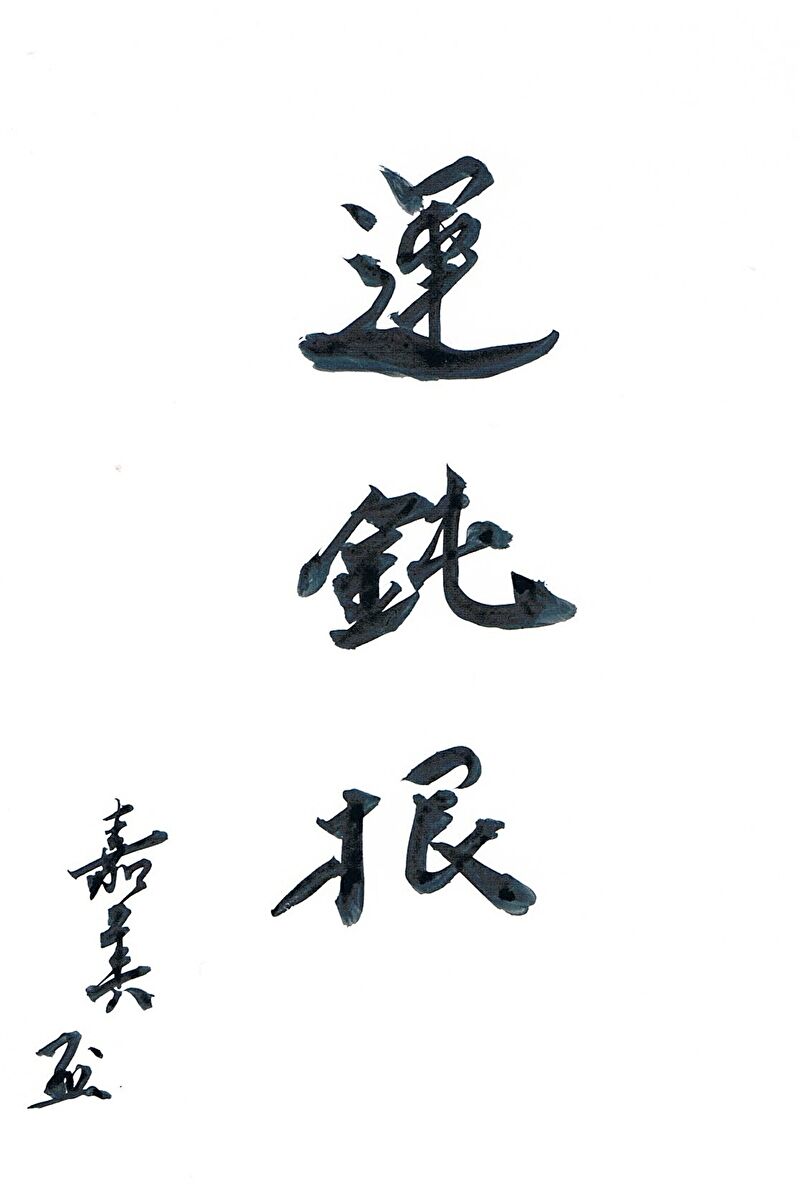 運鈍根
嘉美